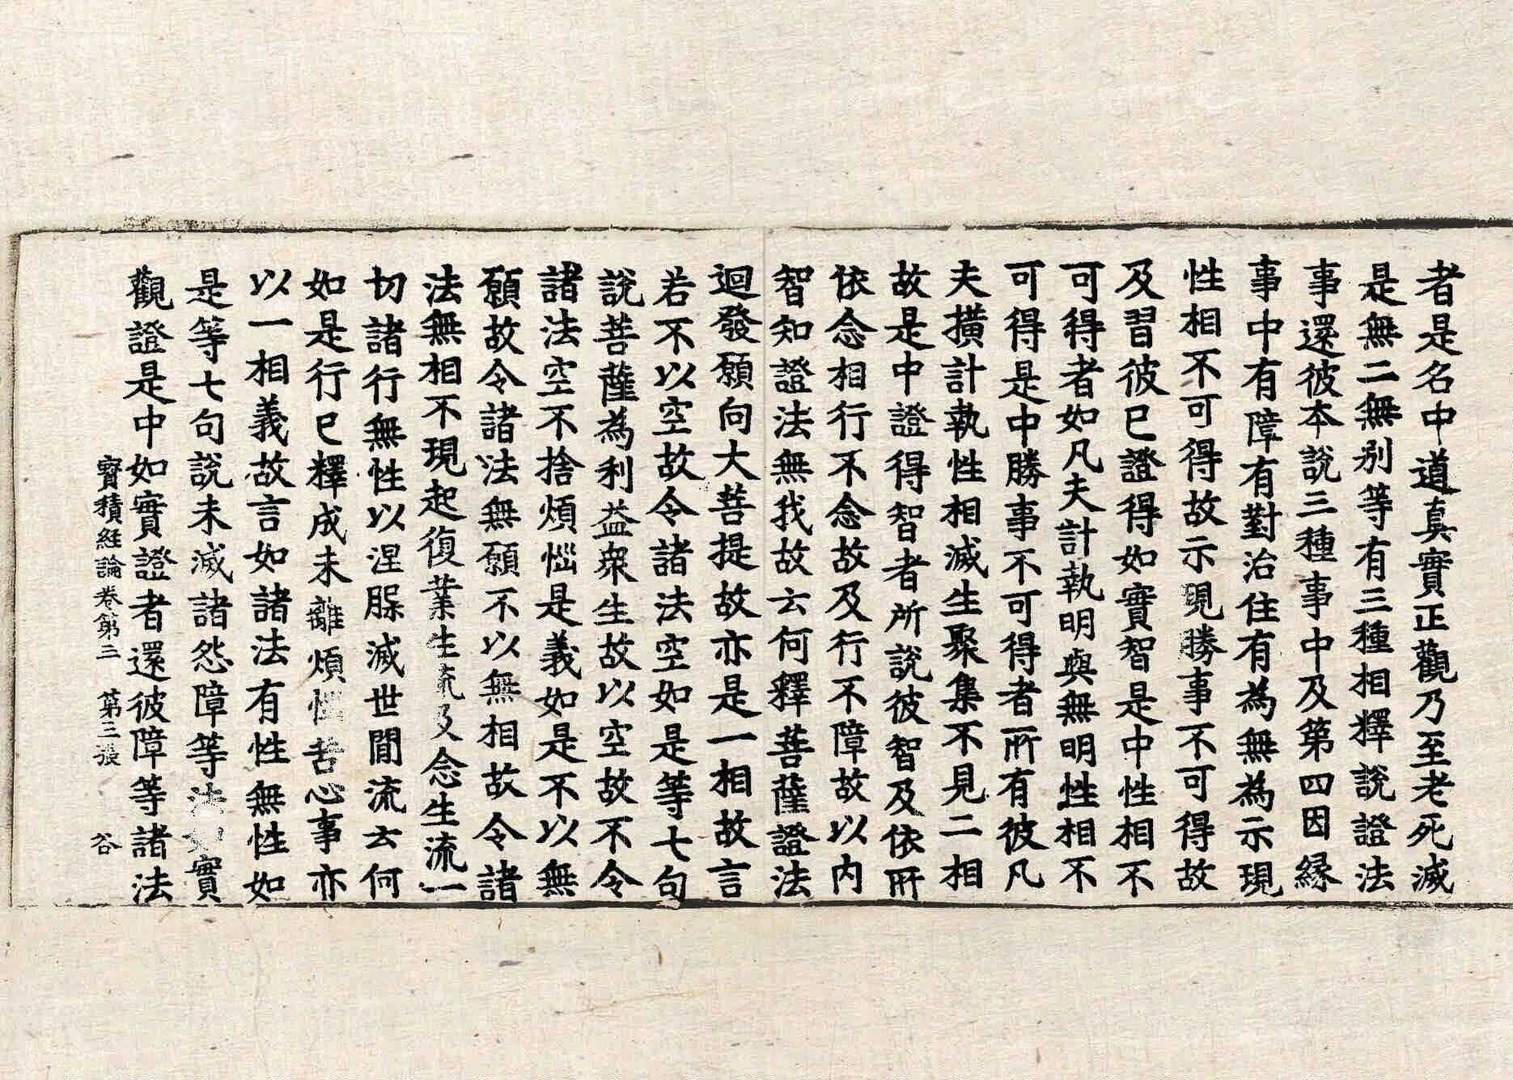 者是名中道真實正觀乃至老死滅
是無二無別等有三種相釋說證法
事還彼本說三種事中及第四因緣
事中有障有對治住有為無為示現
性相不可得故示現勝事不可得故
及習彼已證得如實智是中性相不
可得者如凡夫計執明與無明性相不
可得是中勝事不可得者所有彼凡
夫撗計執性相滅生聚集不見二相
故是中證得智者所說彼智及依所
依念相行不念故及行不障故以內
智知證法無我故云何釋菩薩證法
迴發願向大菩提故亦是一相故言
若不以空故令諸法空如是等七句
說菩薩為利益衆生故以空故不令
諸法空不捨煩惱是義如是不以無
願故令諸法無願不以無相故令諸
法無相不現起復業生流及念生流一
切諸行無性以涅槃滅世間流云何
如是行已釋成未離煩惱苦心事亦
以一相義故言如諸法有性無性如
是等七句說未滅諸怨障等法如實
觀證是中如實證者還彼障等諸法
寶積經論卷第三 第三張 谷